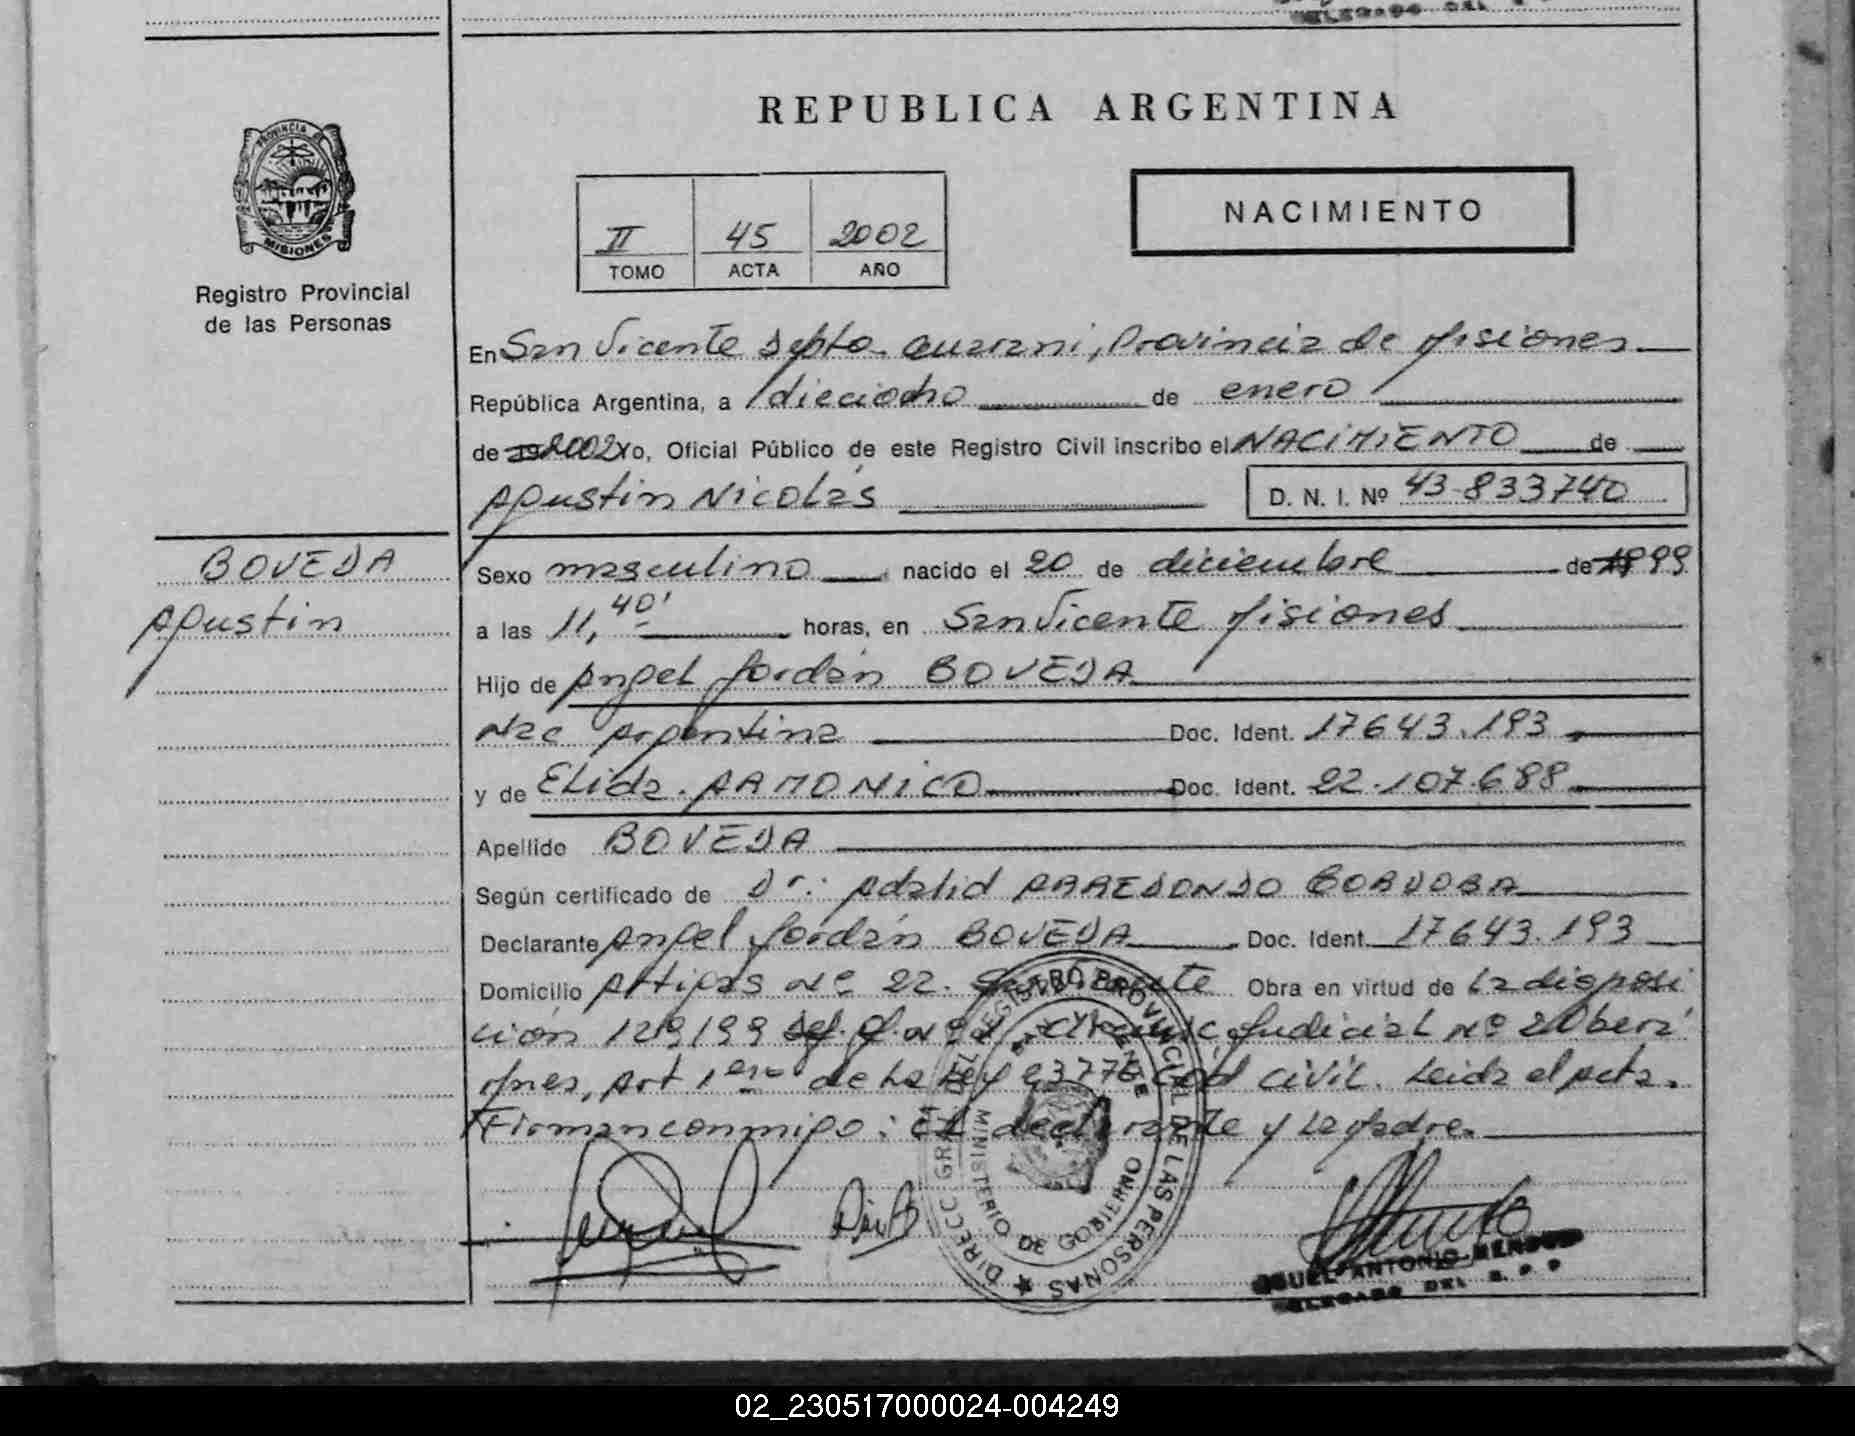 REPUBLICA ARGENTINA
PROVINCIA DE
MISIONES
Registro Provincial
de las Personas
II 45 2002
TOMO ACTA AÑO
NACIMIENTO
En San Vicente Depto. Guarani, Provincia de Misiones
República Argentina, a dieciocho de enero
de 19 2002 Yo, Oficial Público de este Registro Civil inscribo el NACIMIENTO de
Agustin Nicolás D. N. I. Nº 43-833740
BOVEDA
Agustin
Sexo masculino nacido el 20 de diciembre de 1999
a las 11,40' horas, en San Vicente Misiones
Hijo de Angel Jordán BOVEDA
Nac Argentina Doc. Ident. 17643.193
y de Elida RAMONICO Doc. Ident. 22.107.688
Apellido BOVEDA
Según certificado de Dr.: Adalid ARREDONDO CORDOBA
Declarante Angel Jordán BOVEDA Doc. Ident. 17643.193
Domicilio Artigas Nº 22. San Vicente Obra en virtud de la disposi
ción 129/99 Judicial Nº 2 Obera
Mnes, Art 1ero de la Ley 23776 Cod civil. Leida el acta.
Firman conmigo: El declarante y la Madre.
DIRECC. GRAL. DEL REGISTRO PROVINCIAL DE LAS PERSONAS
SAN VICENTE
MINISTERIO DE GOBIERNO
ANTONIO
DELEGADO DEL R. P. P
02_230517000024-004249